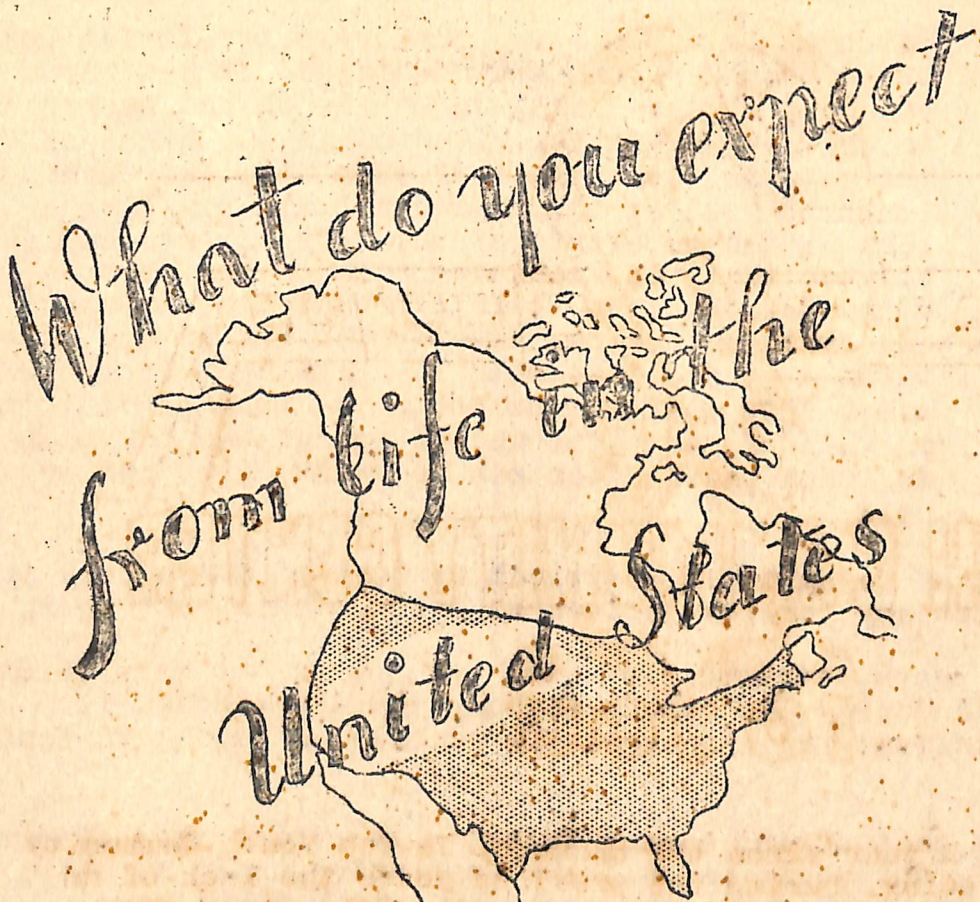 What do you expect
from life in the
United States